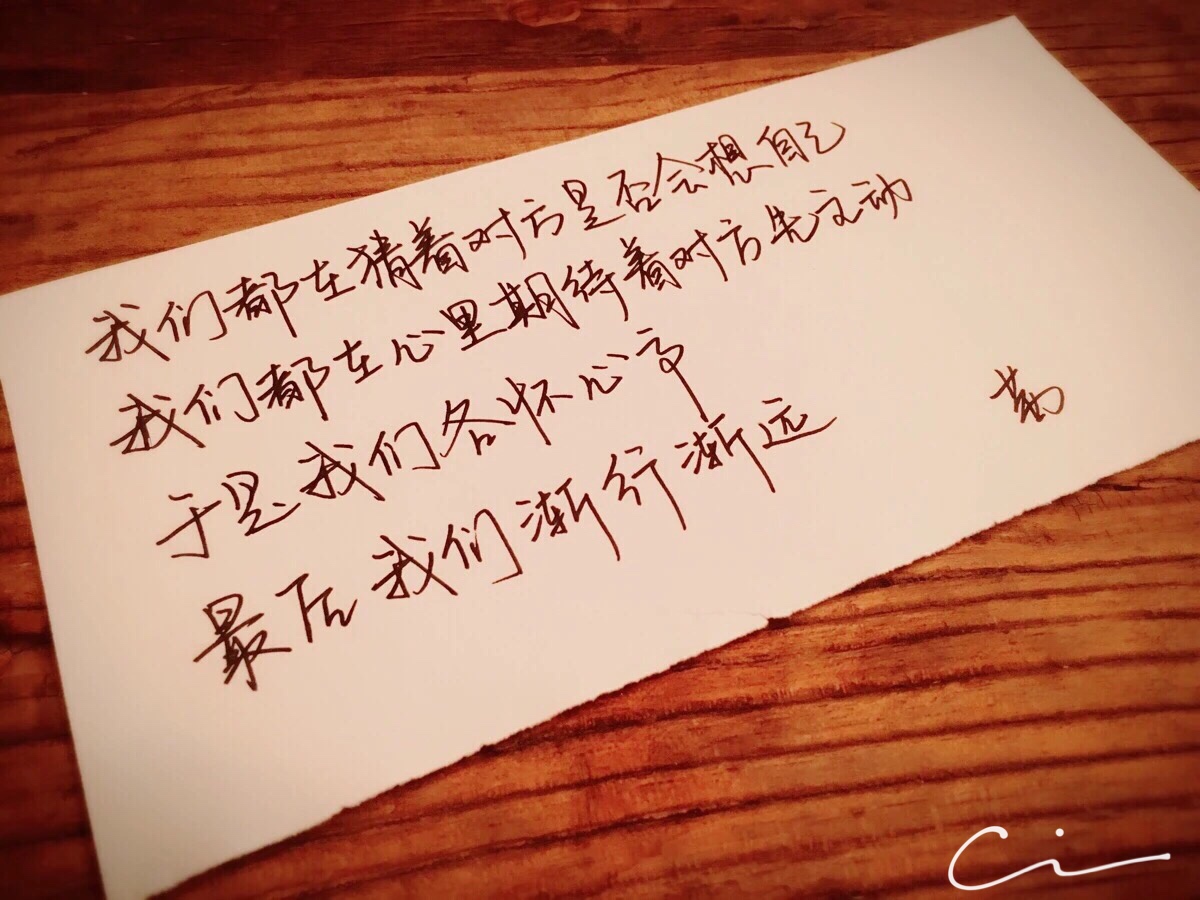 我们都在猜着对方是否会想自己
我们都在心里期待着对方先主动
于是我们各怀心事
最后我们渐行渐远
Ci